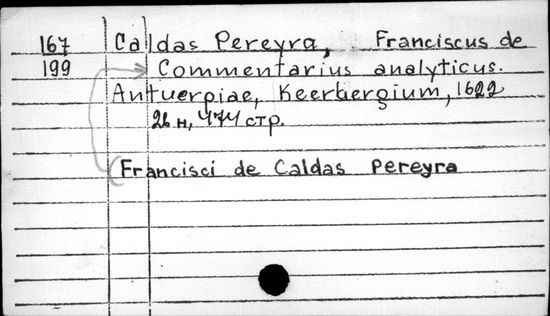 167 Caldas Pereyra, Franciscus de
199 Commentarius analyticus.
Antuerpiae, Keerbergium, 1622
26 н, 474 стр.
Francisci de Caldas Pereyra